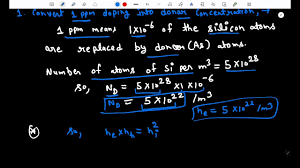 1. Convert 1 ppm doping into donar Concentration, →
1 ppm means 1×10⁻⁶ of the silicon atoms
are replaced by donar (As) atoms.
Number of atoms of Si per m³ = 5×10²⁸
So, N_D = 5×10²⁸ × 1×10⁻⁶
N_D = 5×10²² /m³
n_e = 5×10²² /m³
So, n_e × n_h = n_i²